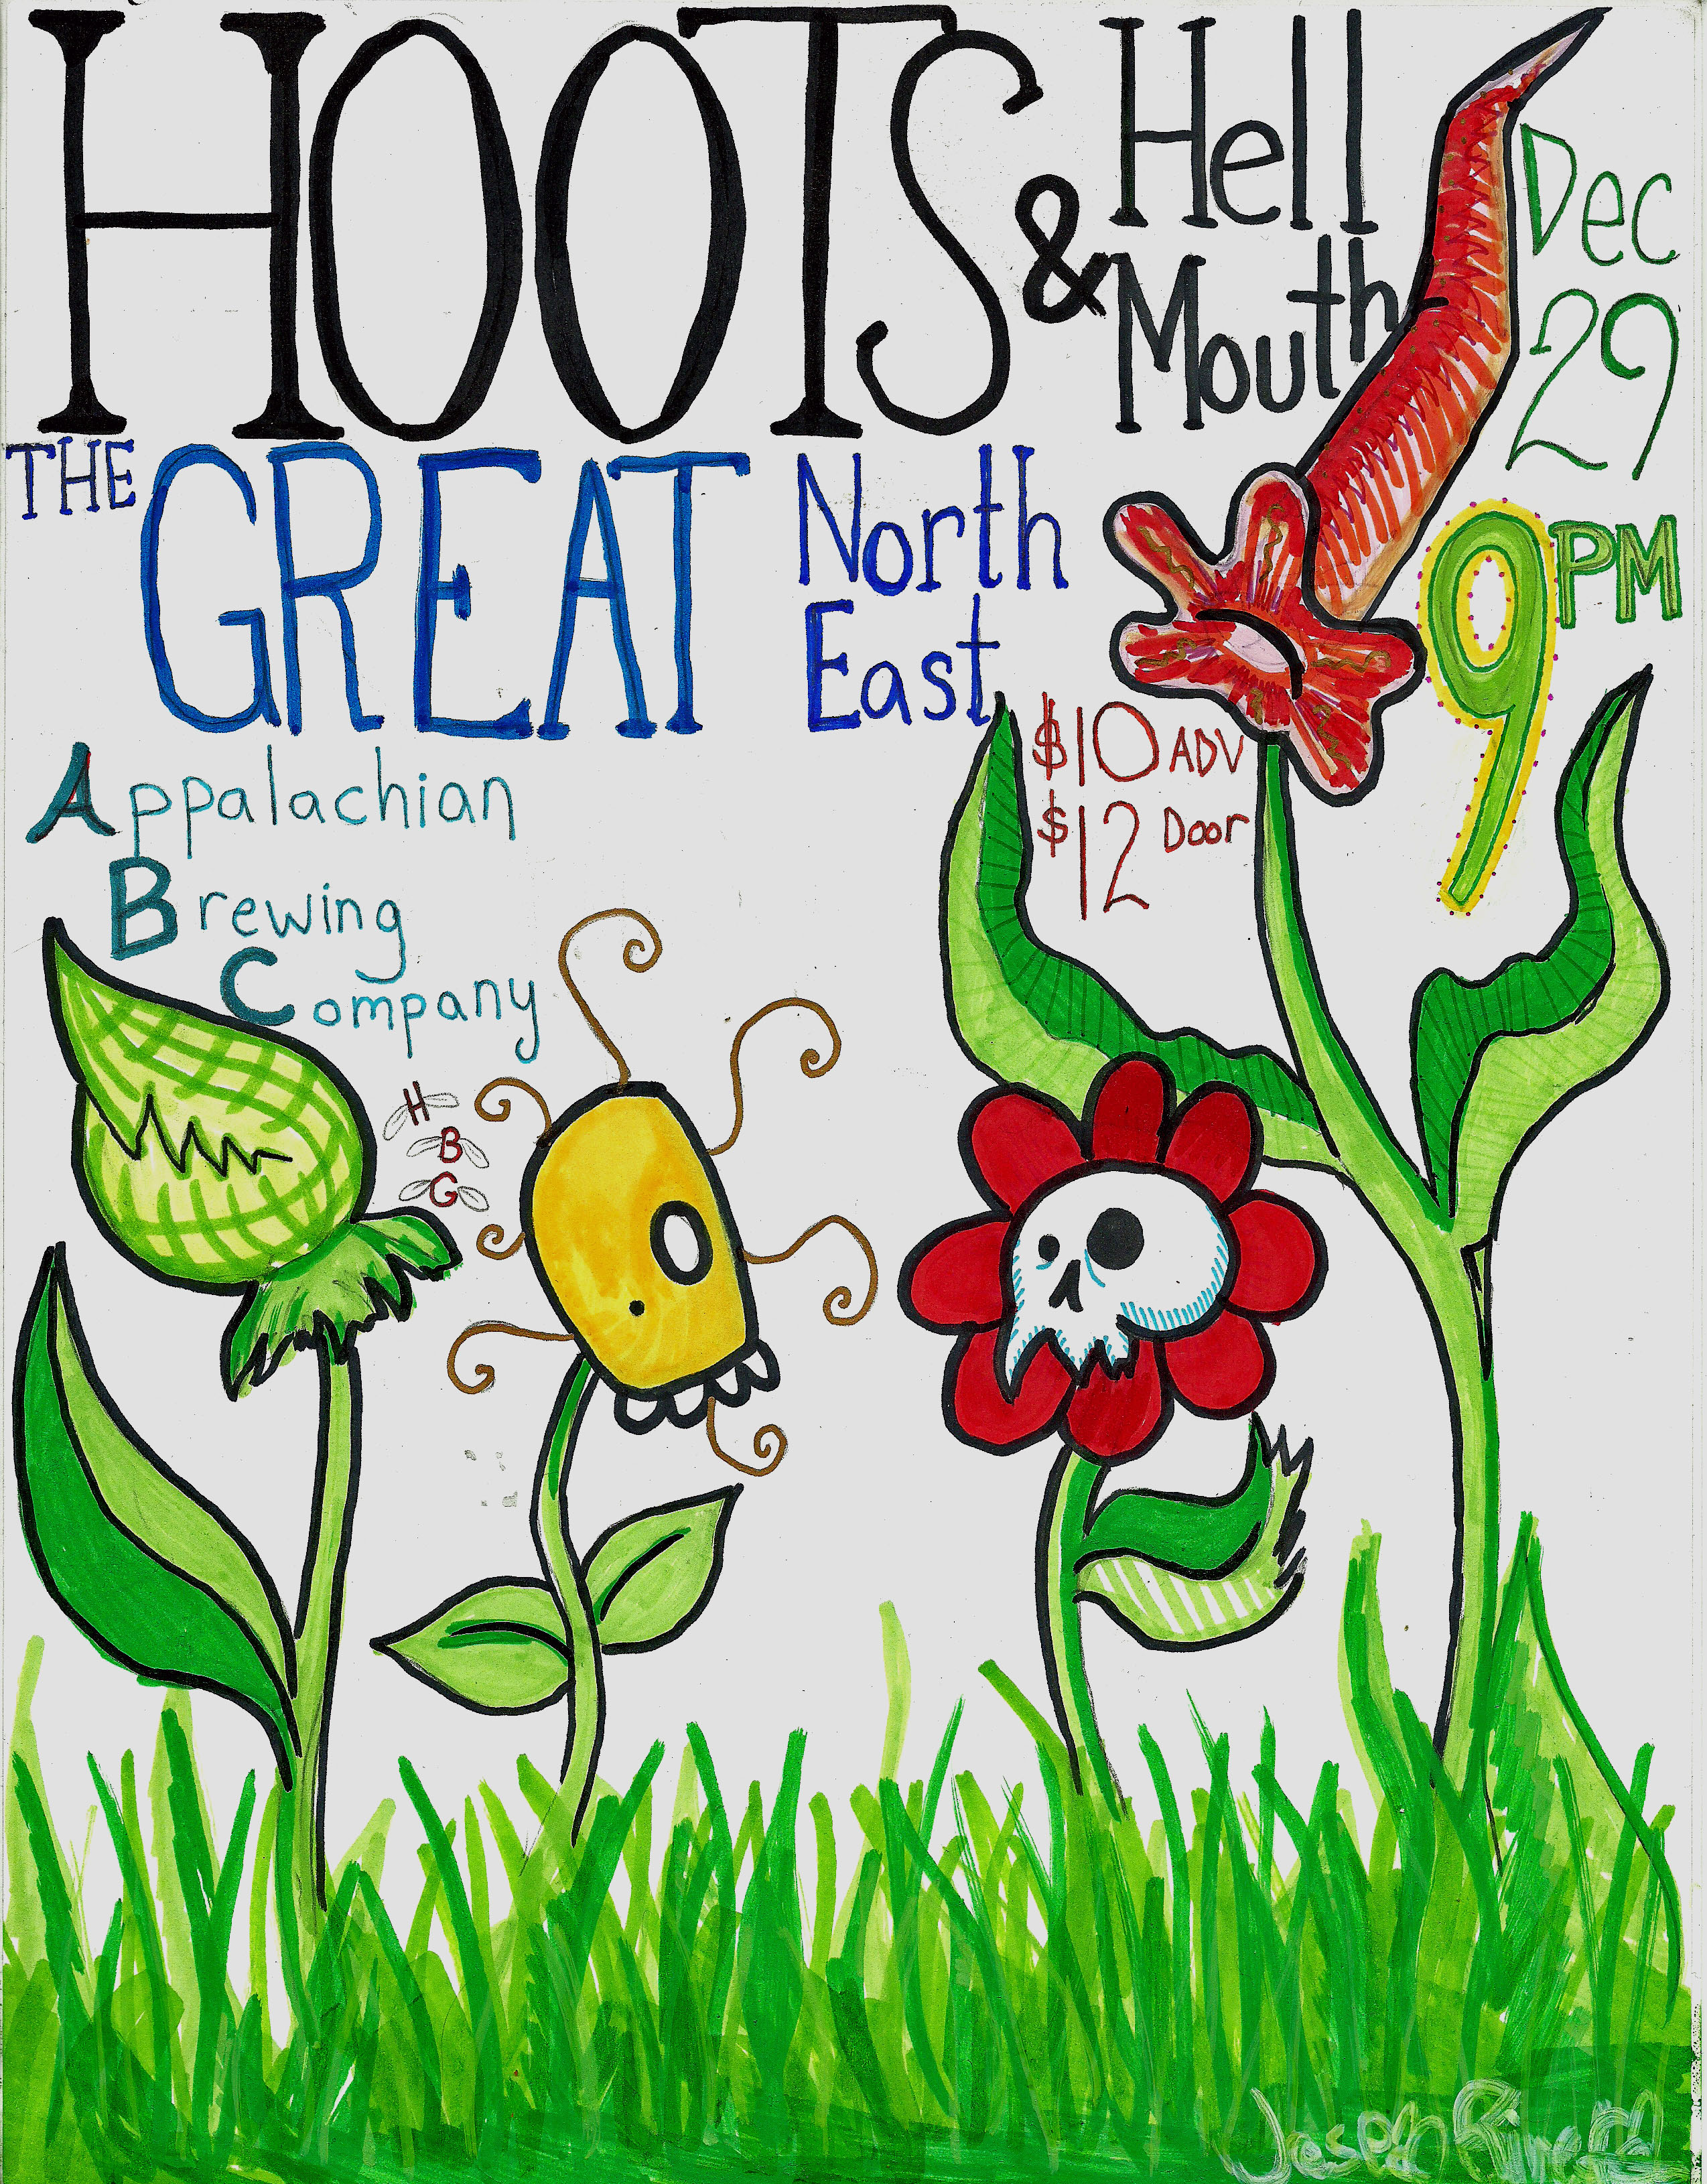 HOOTS & Hell Mouth
Dec
29
9PM
THE GREAT North East
$10 ADV
$12 Door
Appalachian
Brewing
Company
H
B
G
Joseph